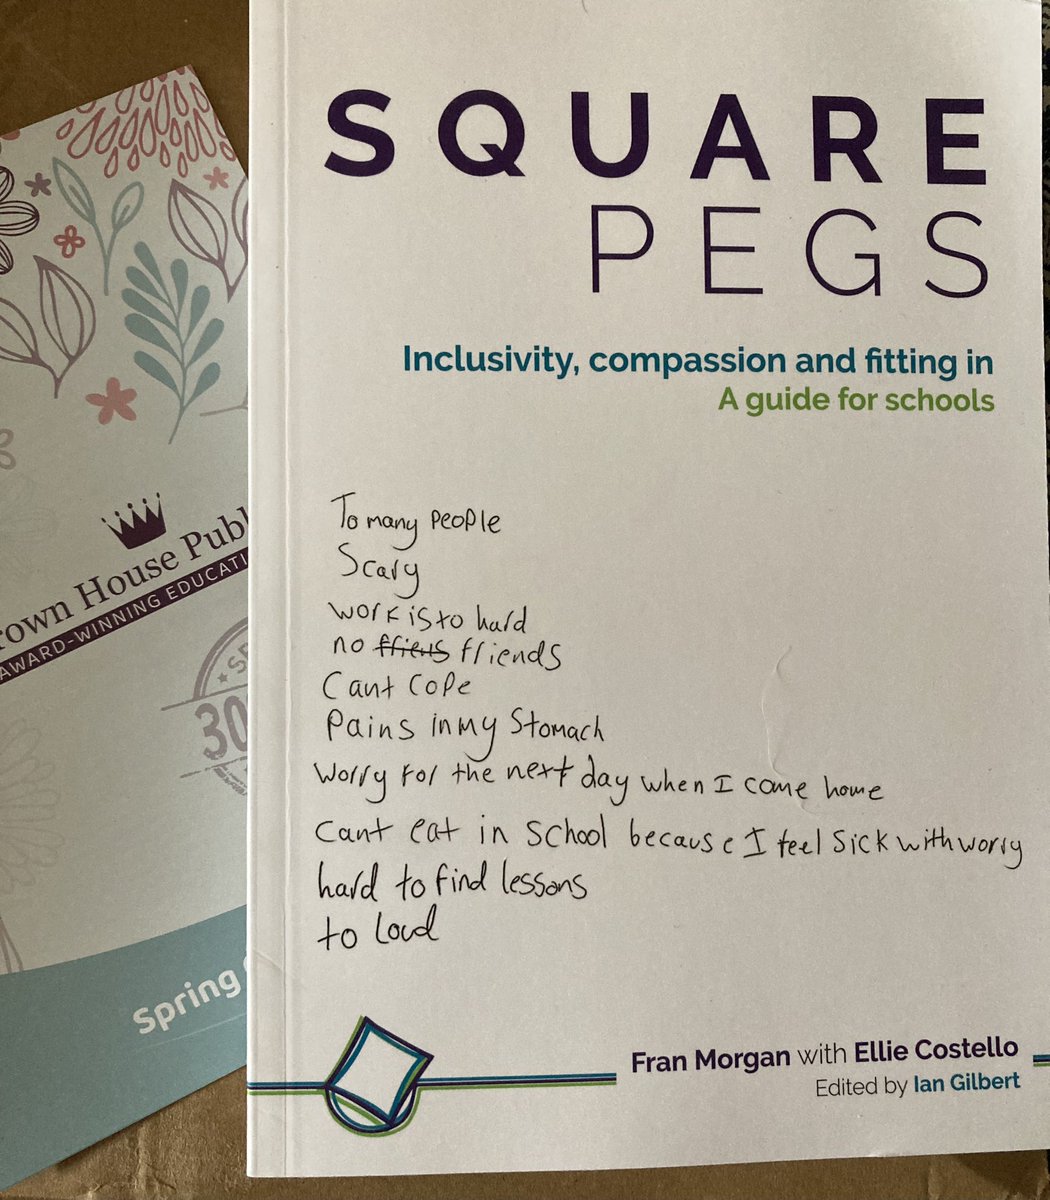 SQUARE
PEGS
Inclusivity, compassion and fitting in
A guide for schools
To many people
Scary
work is to hard
no ffiens friends
Cant cope
Pains in my Stomach
Worry for the next day when I come home
Cant eat in School because I feel Sick with worry
hard to find lessons
to Loud
Fran Morgan with Ellie Costello
Edited by Ian Gilbert
rown House Publ
AWARD-WINNING EDUCATI
30
Spring